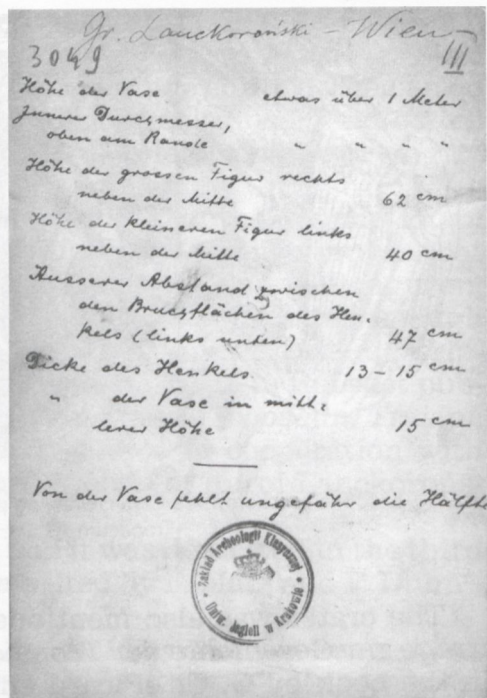 Gr. Lanckoroński – Wien
3049 III
Höhe der Vase etwas über 1 Meter
Innerer Durchmesser,
oben am Rande " " " "
Höhe der grossen Figur rechts
neben der Mitte 62 cm
Höhe der kleineren Figur links
neben der Mitte 40 cm
Äusserer Abstand zwischen
den Bruchflächen des Hen-
kels (links unten) 47 cm
Dicke des Henkels 13–15 cm
" der Vase in mitt-
lerer Höhe 15 cm
Von der Vase fehlt ungefähr die Hälfte
Zakład Archeologii Klasycznej
Uniw. Jagiell. w Krakowie